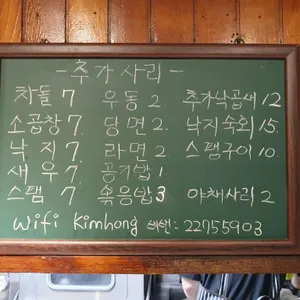 -추가사리-
차돌 7 우동 2 추가낙곱새 12
소곱창 7 당면 2 낙지숙회 15
낙지 7 라면 2 스팸구이 10
새우 7 공기밥 1
스팸 7 볶음밥 3 야채사리 2
wifi kimhong 비번: 22755903